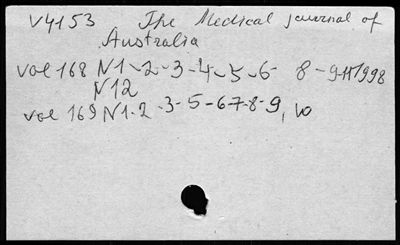 V4153 The Medical journal of
Australia
vol 168 N1-2-3-4-5-6- 8-9-11/1998
N12
vol 169 N1-2-3-5-6-7-8-9, 10